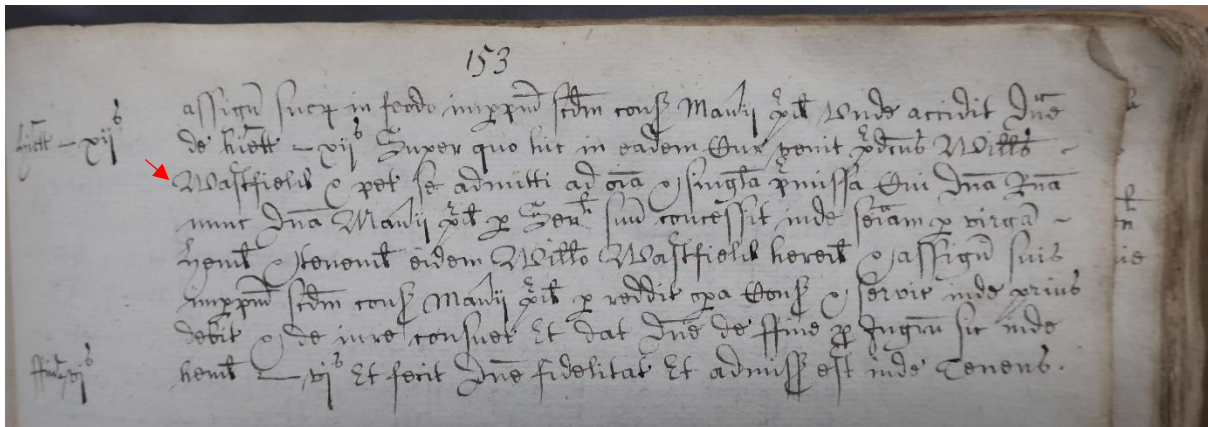 153
assign suor in feodo imppm scdm cons Manlij pd Unde accidit Dne
hiett – xij s
de hiett – xij s Super quo hic in eadem Cur venit pdcus Willus
Wastfield & pet se admitti ad oia & singla pmissa Cui Dna Rna
nunc Dna Manlij pd p Senlm suu concessit inde seiam p virga
hend & tenend eidem Willo Wastfield hered & assign suis
imppm scdm cons Manlij pd p reddit opa Cons & servic inde prius
debit & de iure consuet Et dat Dne de ffine p Ingru sic inde
ffine vj s
hend – vj s Et fecit Dne fidelitat Et admiss est inde Tenens.